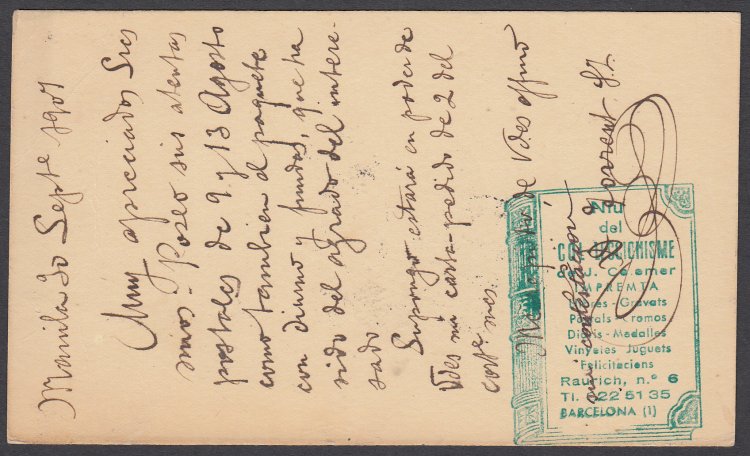 Manila 30 Septe 1901
Muy apreciados Sres
mios: Poseo sus atentas
postales de 9 y 13 Agosto
como tambien el paquete
con diurno y fundas, que ha
sido del agrado del intere-
sado.
Supongo estará en poder de
Vdes mi carta-pedido de 2 del
corrte mes.
de Vdes affmo
Niu
del
COL·LECCIONISME
de J. Colomer
IMPREMTA
Gravats
Postals - Cromos
Diaris - Medalles
Vinyetes Juguets
Felicitacions
Raurich, n.º 6
Tl. 222 51 35
BARCELONA (1)